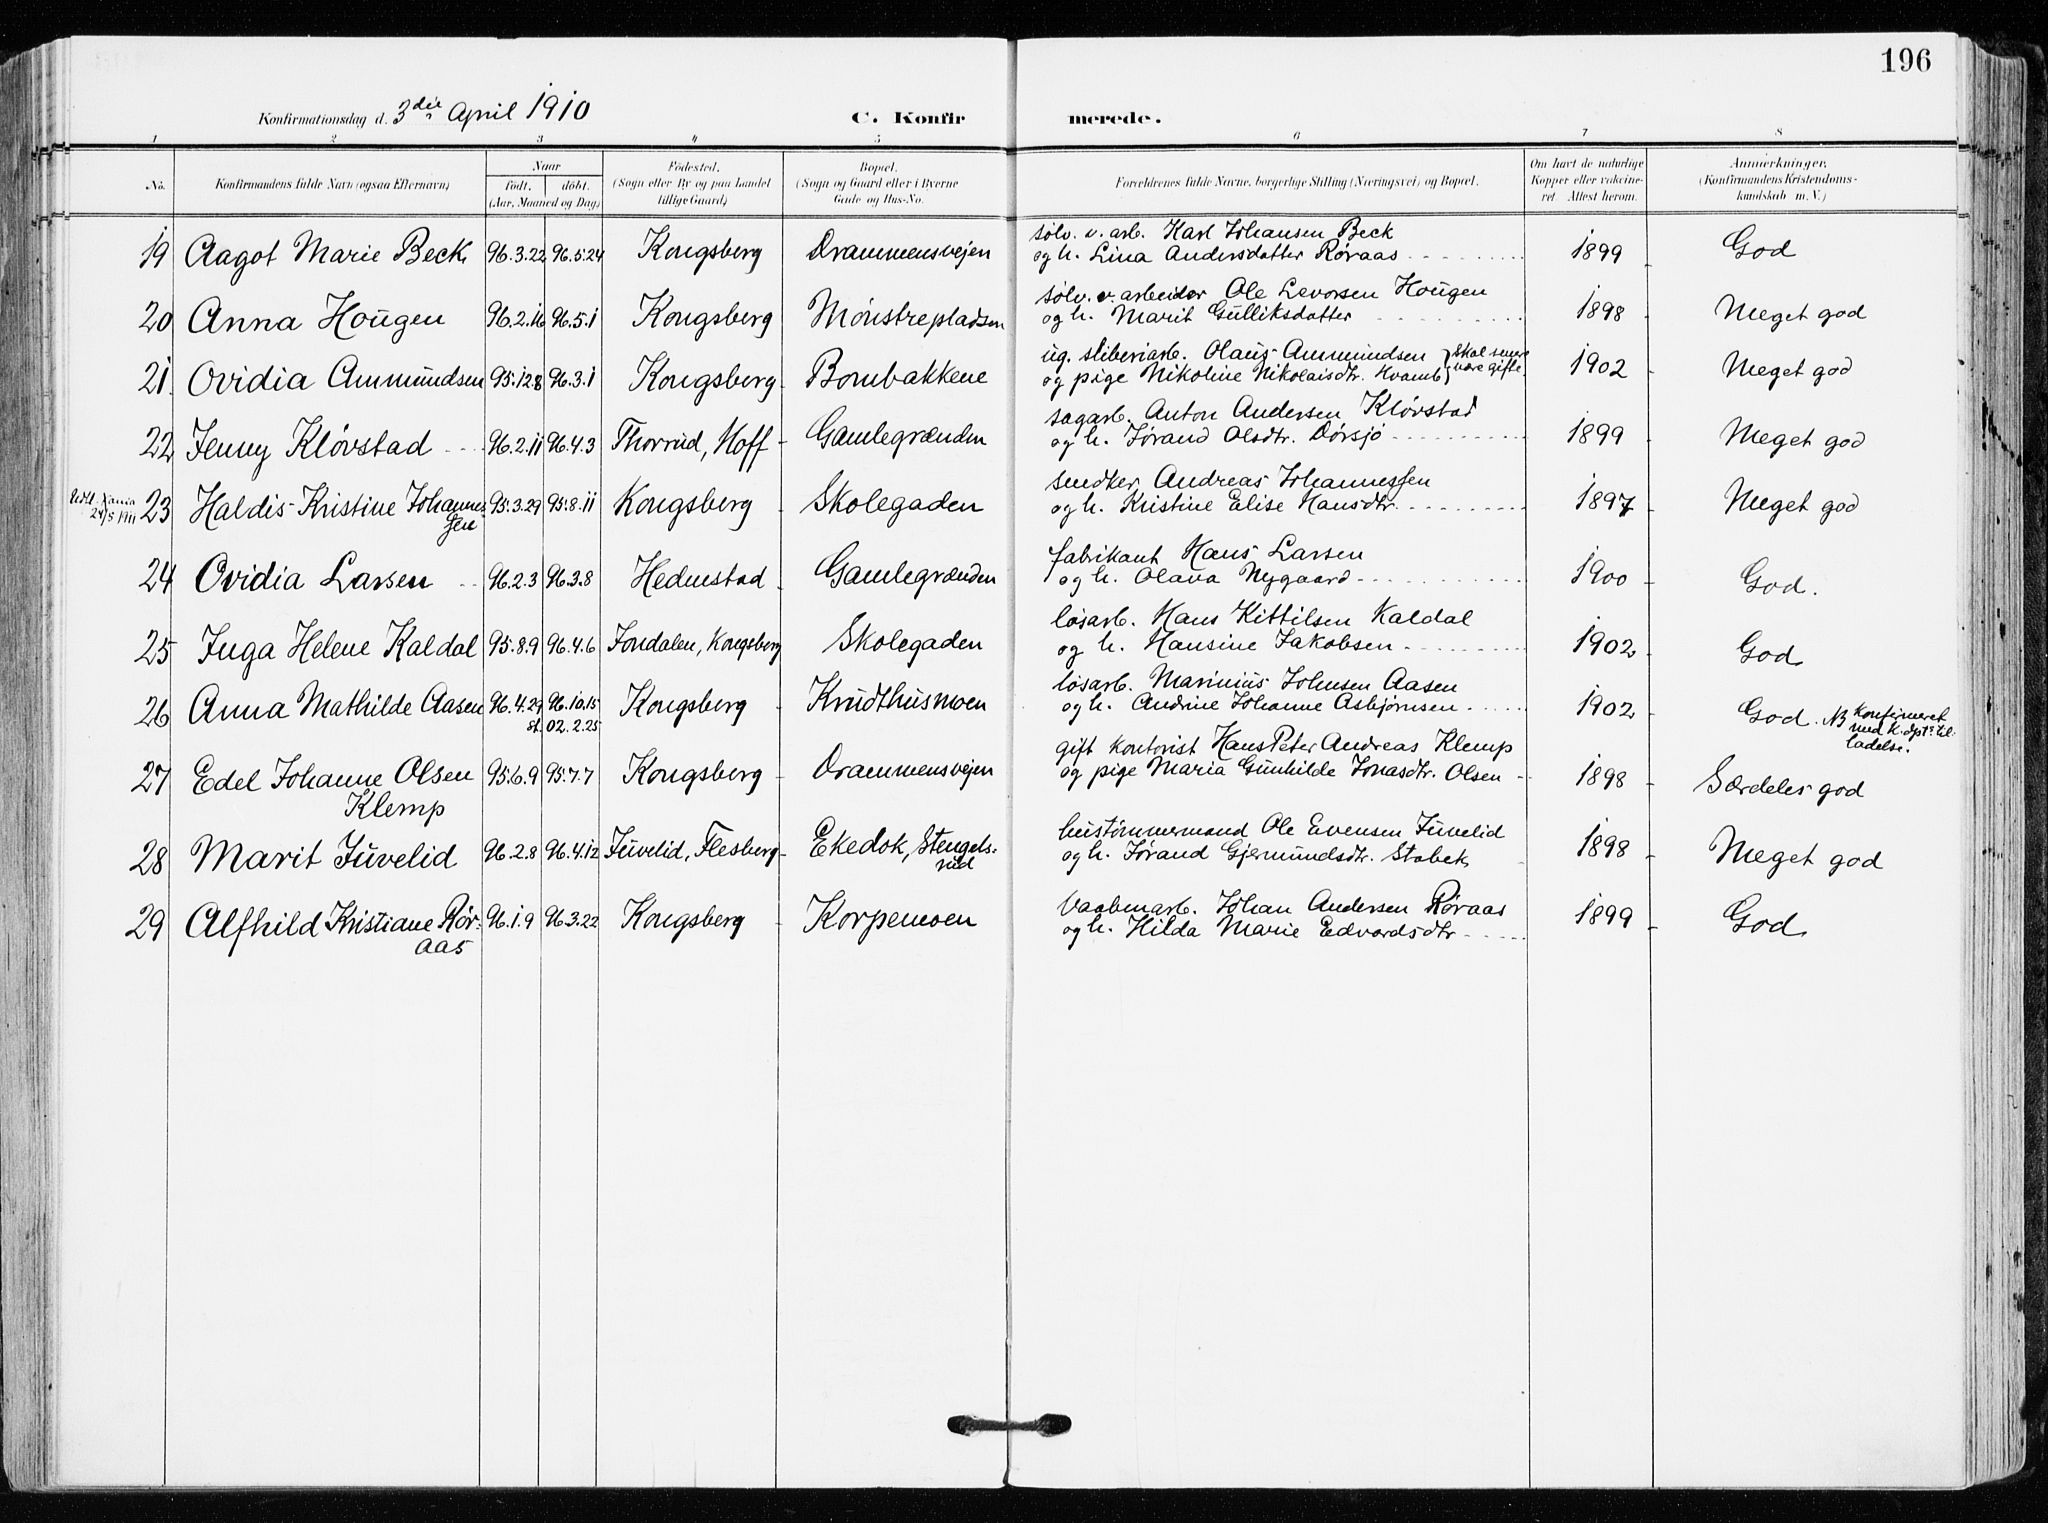 196
Konfirmationsdag d. 3die April 1910 C. Konfirmerede.
1 2 3 4 5 6 7 8
No. Konfirmandens fulde Navn (ogsaa Efternavn) Naar født, døbt. (Aar, Maaned og Dag) Fødested. (Sogn eller By og paa Landet tillige Gaard) Bopæl. (Sogn og Gaard eller i Byerne Gade og Hus-No. Forældrenes fulde Navne, borgerlige Stilling (Næringsvei) og Bopæl. Om havt de naturlige Kopper eller vakcineret. Attest herom. Anmærkninger. (Konfirmandens Kristendomskundskab m. V.)
19 Aagot Marie Beck 96.3.22 96.5.24 Kongsberg Drammensvejen sølv. v. arb. Karl Johansen Beck
og h. Lina Andersdatter Røraas 1899 God
20 Anna Hougen 96.2.16 96.5.1 Kongsberg Mønstrepladsen sølv. v. arbeider Ole Levorsen Hougen
og h. Marit Gulliksdatter 1898 Meget god
21. Ovidia Ammundsen 95.12.8 96.3.1 Kongsberg Bombakkene ug. sliberiarb. Olaus Ammundsen } skal senere
og pige Nikoline Nikolaisdtr. Hvamb } være gifte. 1902 Meget god
22 Jenny Kløvstad 96.2.11 96.4.3 Thorrud, Hoff Gamlegrænden sagarb. Anton Andersen Kløvstad
og h. Jørand Olsdtr. Dørsjø 1899 Meget god
Udtl. Xania
24/5 1911 23 Haldis Kristine Johannes-
sen 95.3.29 95.8.11 Kongsberg Skolegaden snedker Andreas Johannessen
og h. Kristine Elise Hansdtr. 1897 Meget god
24 Ovidia Larsen 96.2.3 96.3.8 Hedenstad Gamlegrænden fabrikant Hans Larsen
og h. Olava Nygaard 1900 God.
25 Inga Helene Kaldal 95.8.9 96.4.6 Jondalen, Kongsberg Skolegaden løsarb. Hans Kittilsen Kaldal
og h. Hansine Jakobsen 1902 God
26 Anna Mathilde Aasen 96.4.29 96.10.15
st. 02.2.25 Kongsberg Krudthusmoen løsarb. Marinius Johnsen Aasen
og h. Andrine Johanne Asbjørnsen 1902 God. NB konfirmeret
med K.dpts til
ladelse.
27 Edel Johanne Olsen
Klemp 95.6.9 95.7.7 Kongsberg Drammensvejen gift kontorist Hans Peter Andreas Klemp
og pige Maria Gunhilde Jonasdtr. Olsen 1898 Særdeles god
28 Marit Juvelid 96.2.8 96.4.12 Juvelid, Flesberg Ekedok, Stengels-
rud hustømmermand Ole Evensen Juvelid
og h. Jørand Gjermundsdtr. Stabek 1898 Meget god
29 Alfhild Kristiane Rør-
aas 96.1.9 96.3.22 Kongsberg Korpemoen Vaabenarb. Johan Andersen Røraas
og h. Hilda Marie Edvardsdtr 1899 God